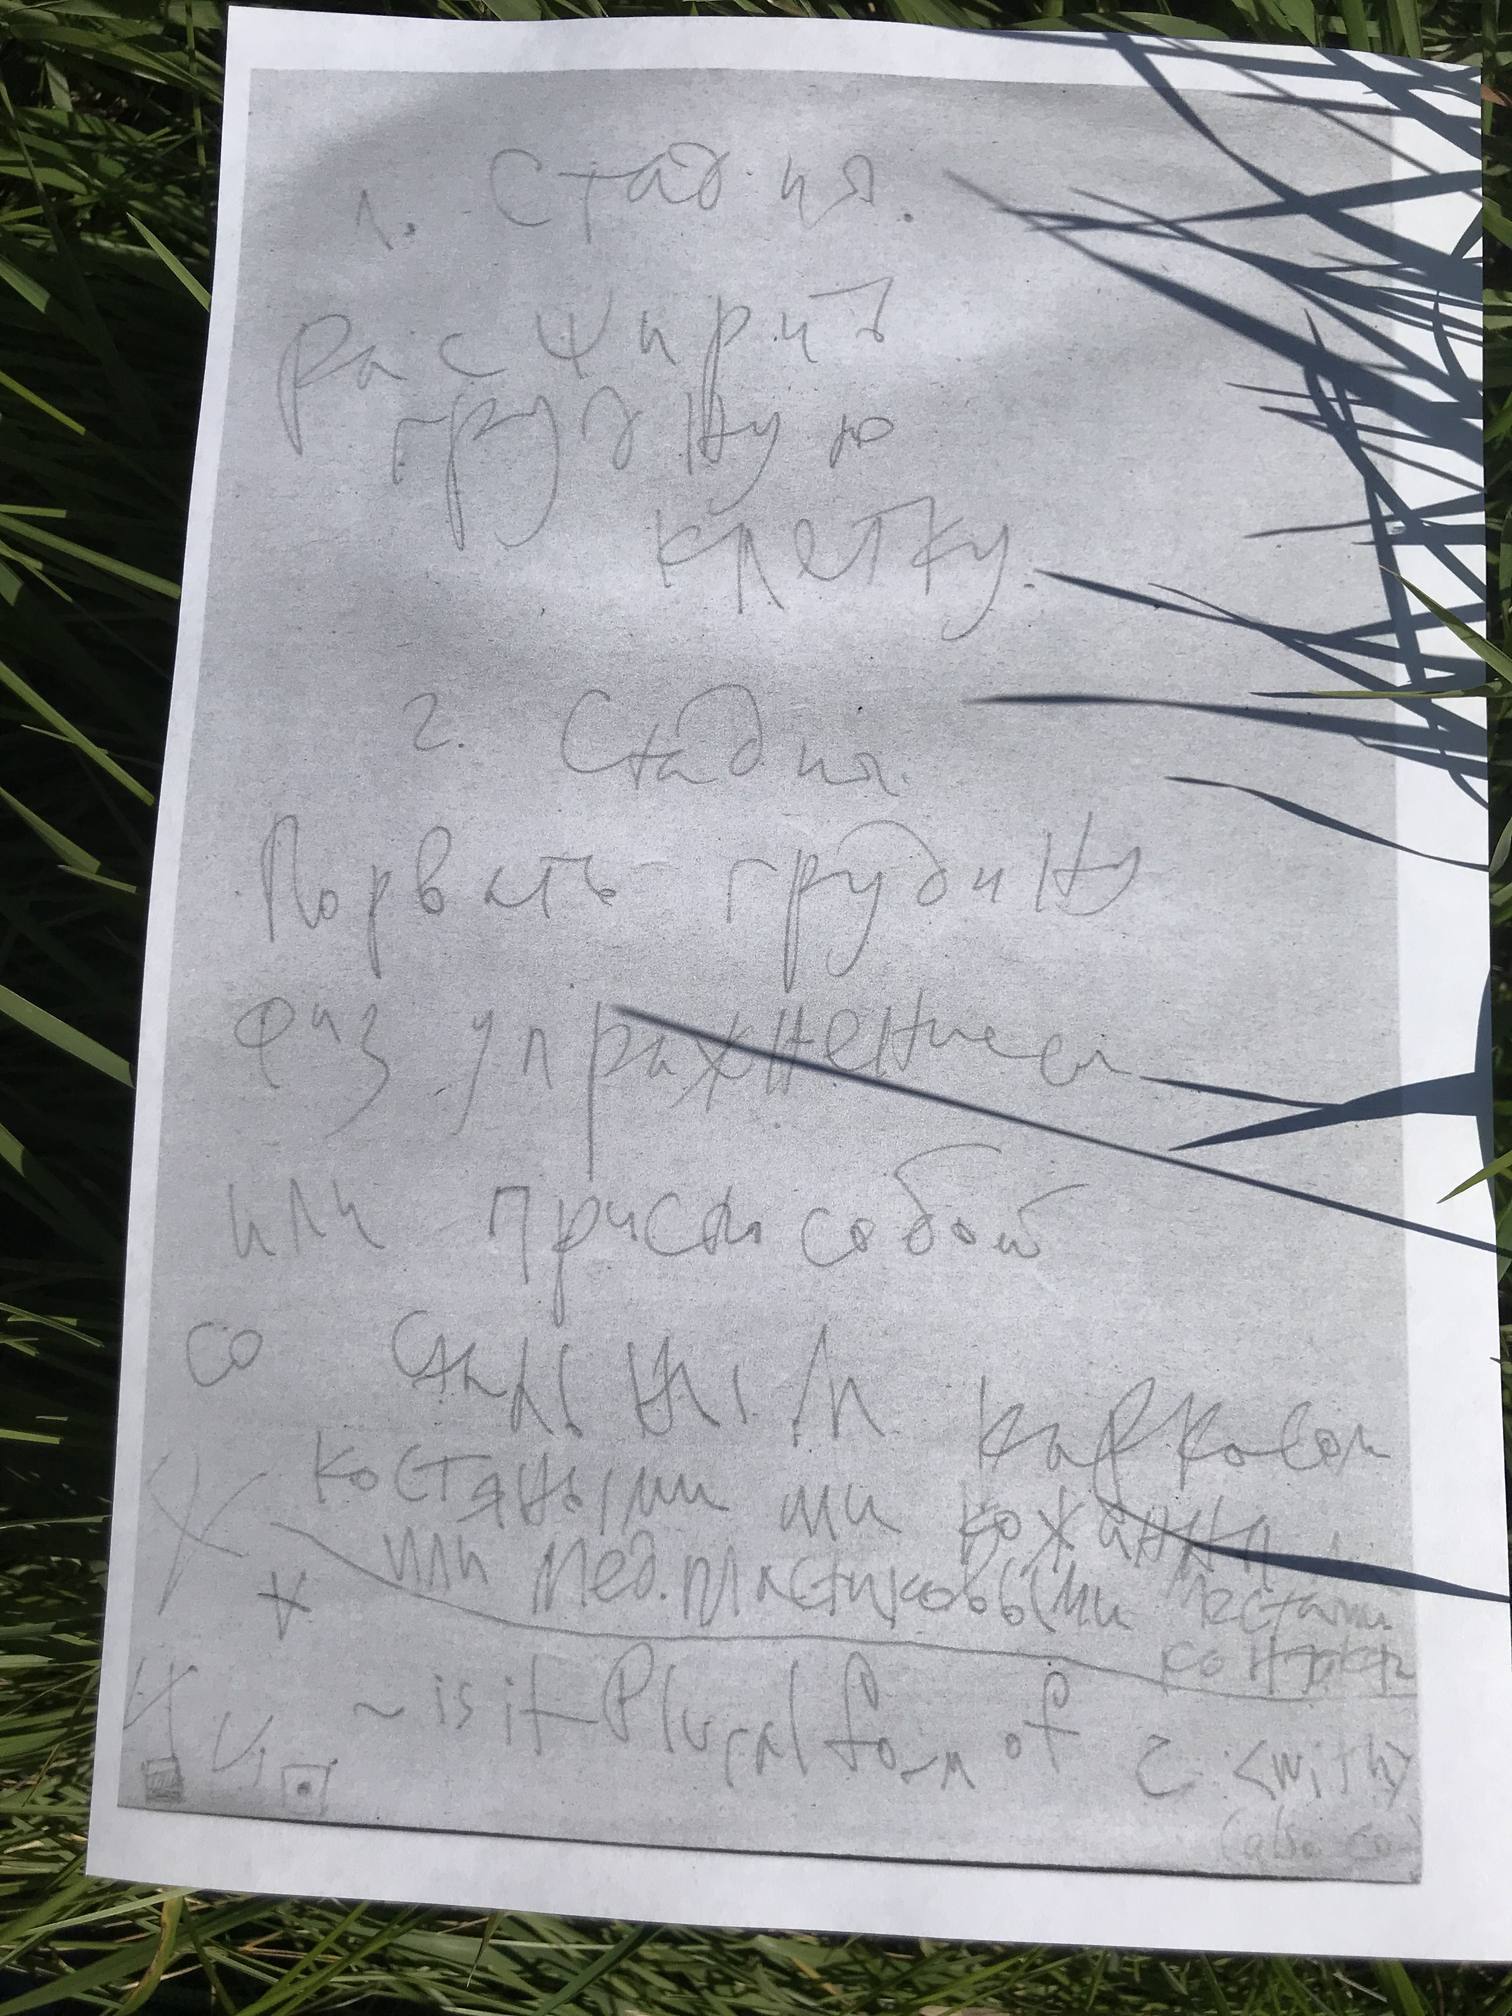 1. Стадия.
Расширить
грудную
клетку.
2. Стадия.
Порвать грудину
физ упражнением
или приспособой
со стальным каркасом
костяными или кожанными
или мед. пластиковыми местами
контакта
~ is it Plural form of с <with>
(also со)